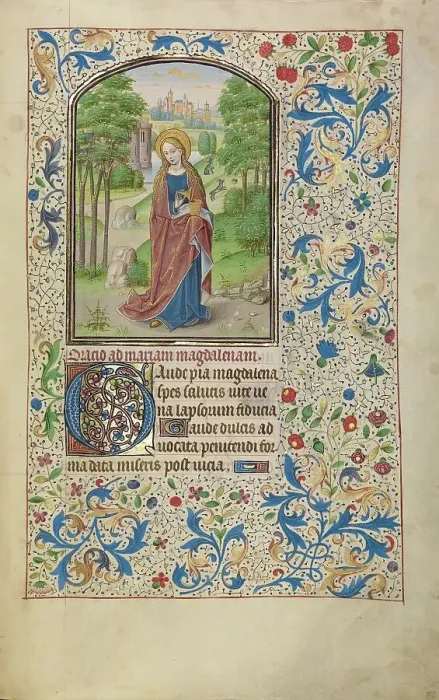 Oracio ad mariam magdalenam.
Gaude pia magdalena
spes salutis vite ve
na lapsorum fiducia
Gaude dulcis ad
uocata penitendi for
ma data miseris post uicia.